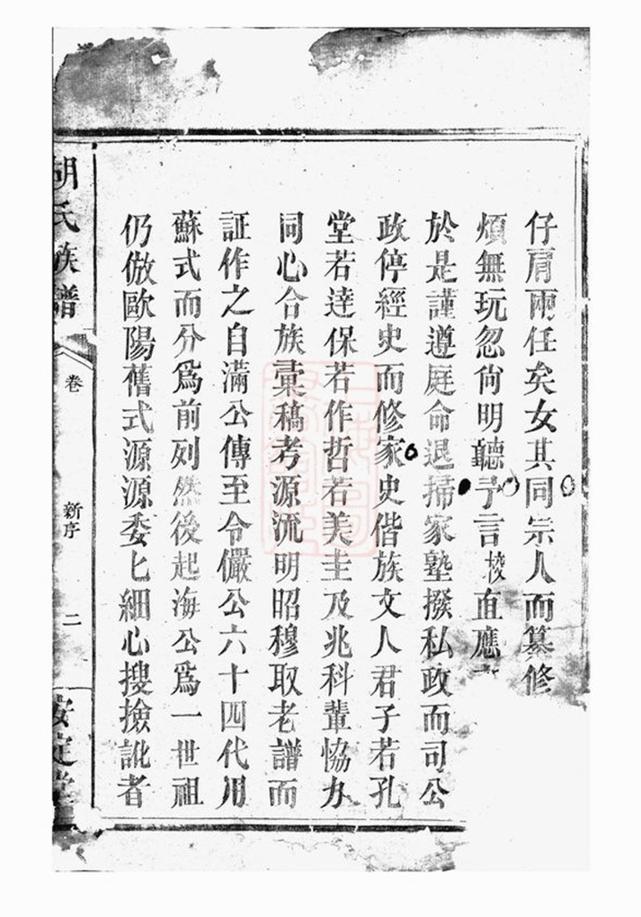 仔肩兩任矣女其同宗人而纂修
煩無玩忽尙明聽予言校直應
於是謹遵庭命退掃家塾撥私政而司公
政停經史而修家史偕族文人君子若孔
堂若達保若作哲若美圭及兆科輩恊力
同心合族彚稿考源流明昭穆取老譜而
証作之自滿公傳至令儼公六十四代用
蘇式而分爲前列然後起海公爲一世祖
仍倣歐陽舊式源源委匕細心搜撿訛者
胡氏族譜
卷
新序
二
安定堂